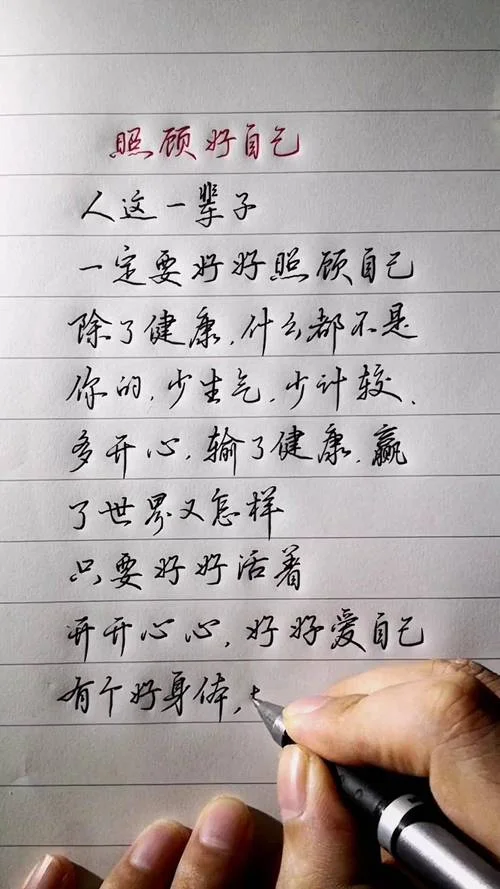 照顾好自己
人这一辈子
一定要好好照顾自己
除了健康,什么都不是
你的,少生气,少计较、
多开心,输了健康,赢
了世界又怎样
只要好好活着
开开心心,好好爱自己
有个好身体,